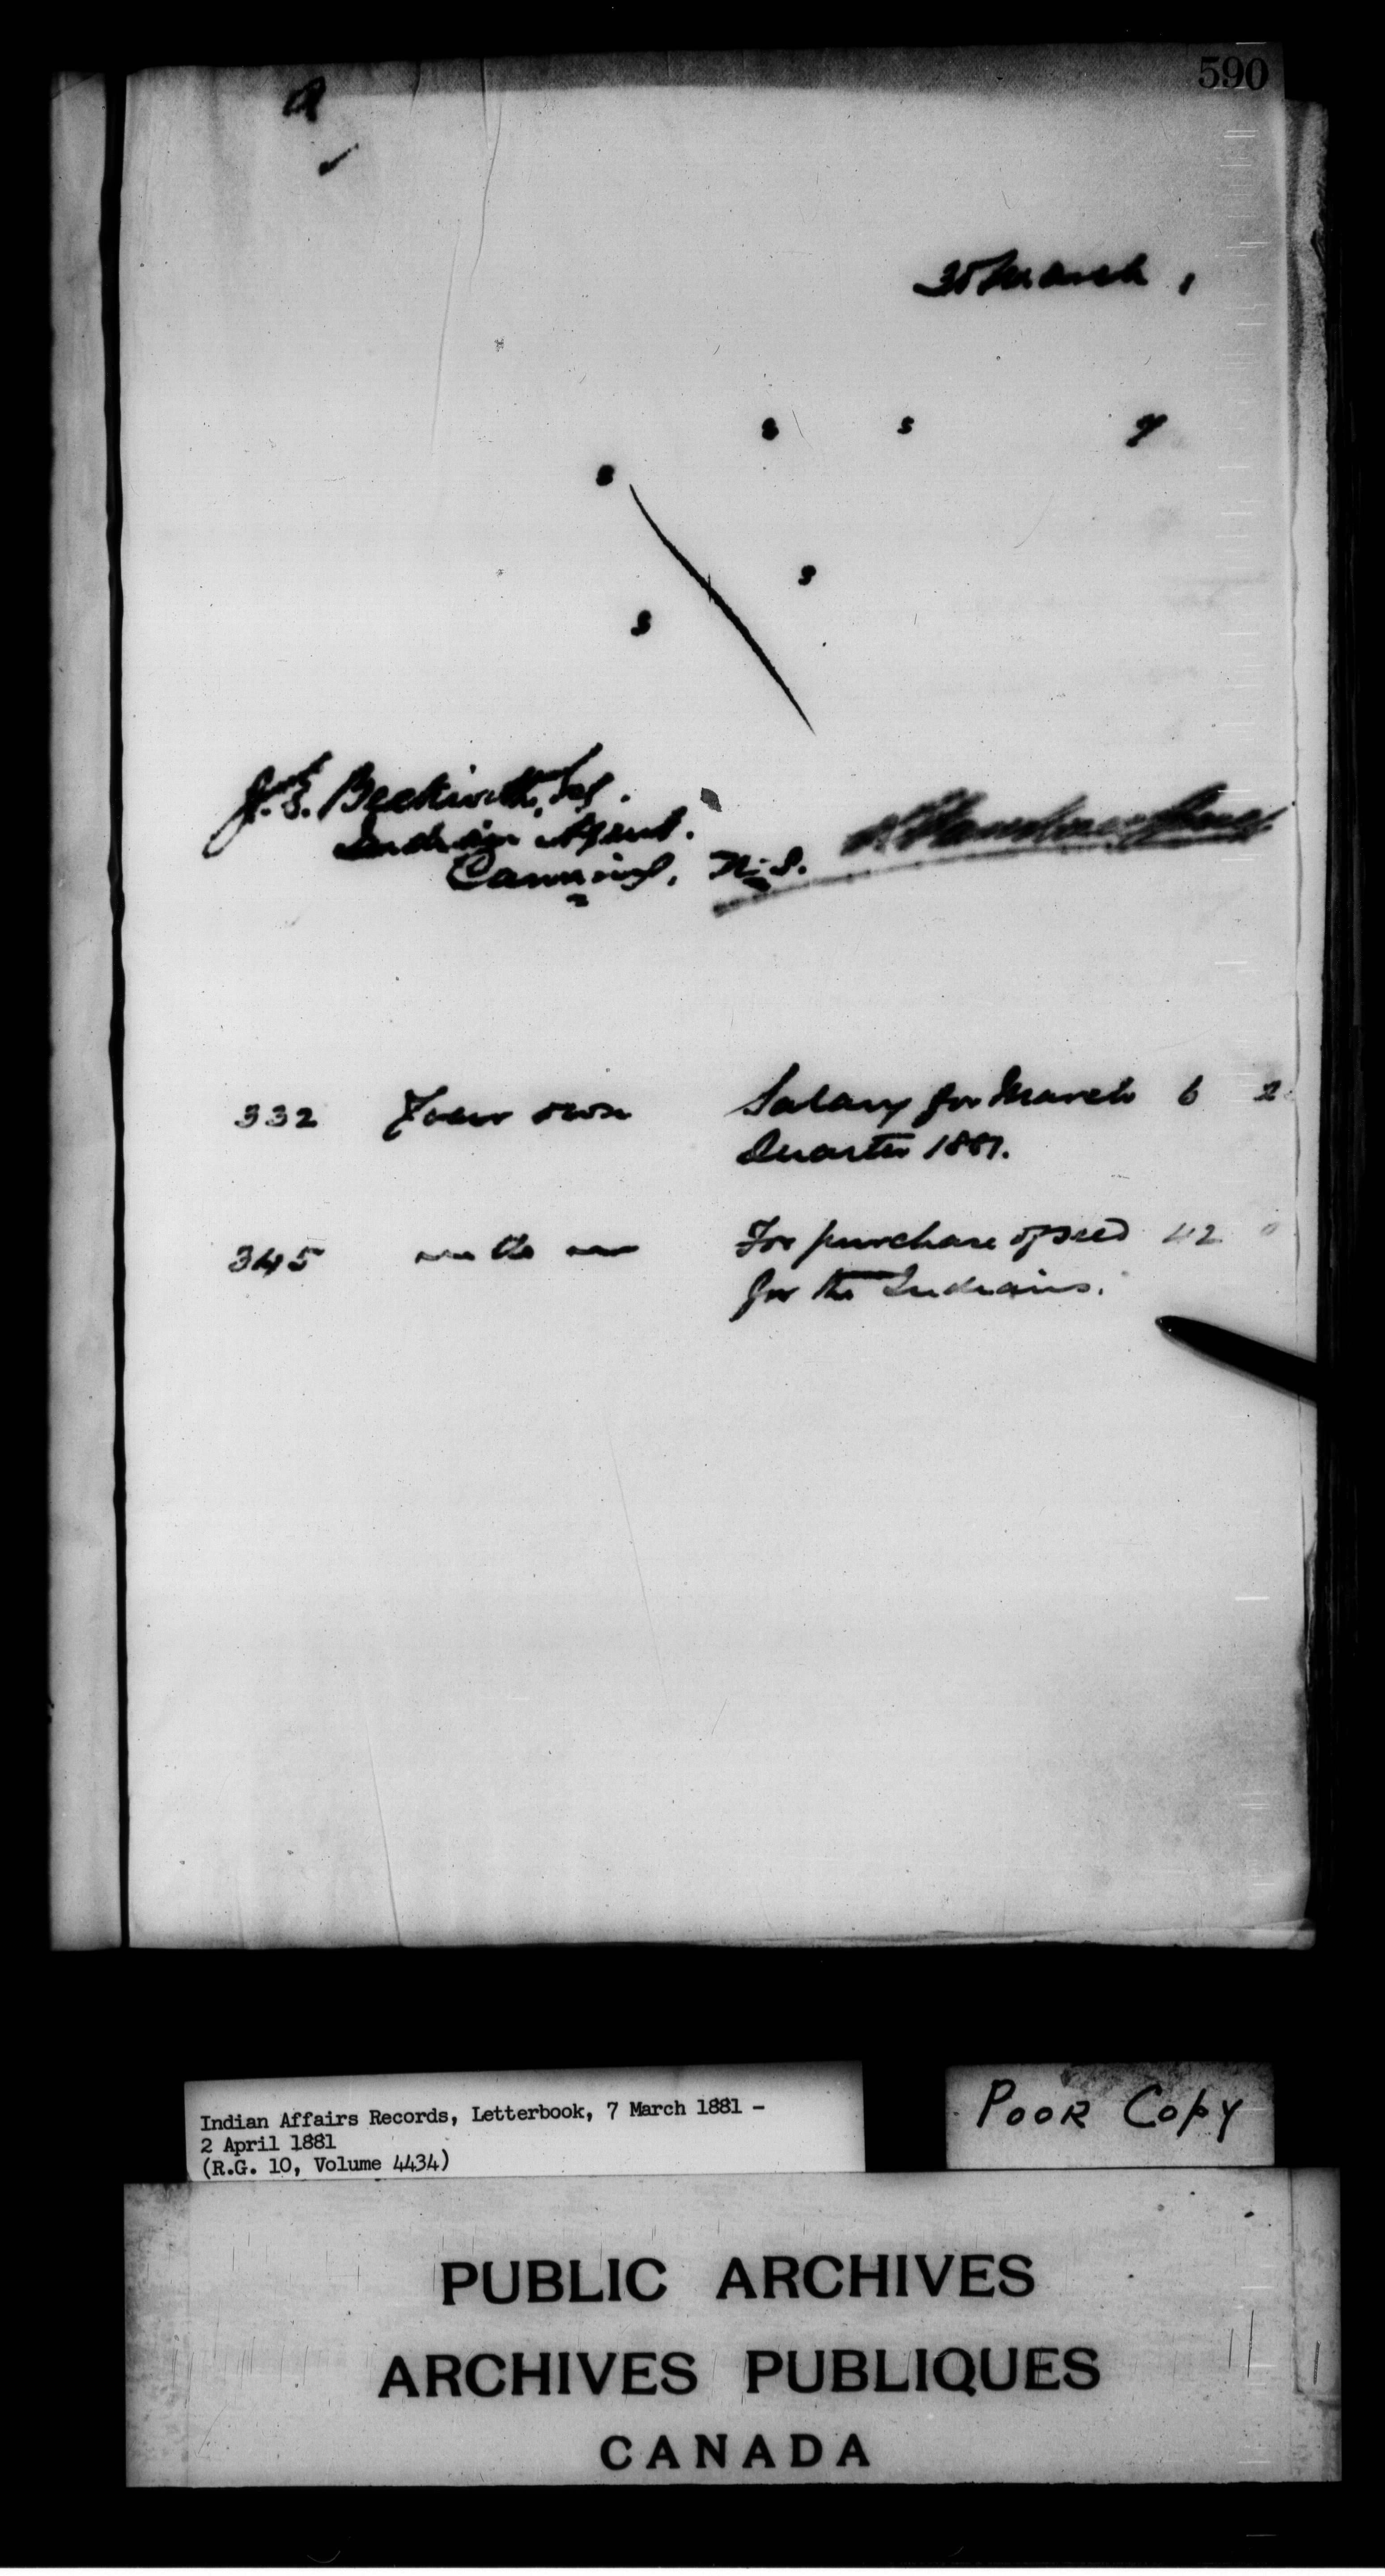 590
30 March, 1
s s y
s
s
s
J. E. Beckwith, Esq.
Indian Agent.
Canning, N.S.
332 Your own Salary for March 6 2
Quarter 1881.
345 For purchase of seed 42 0
for the Indians.
Indian Affairs Records, Letterbook, 7 March 1881 -
2 April 1881
(R.G. 10, Volume 4434)
POOR COPY
PUBLIC ARCHIVES
ARCHIVES PUBLIQUES
CANADA